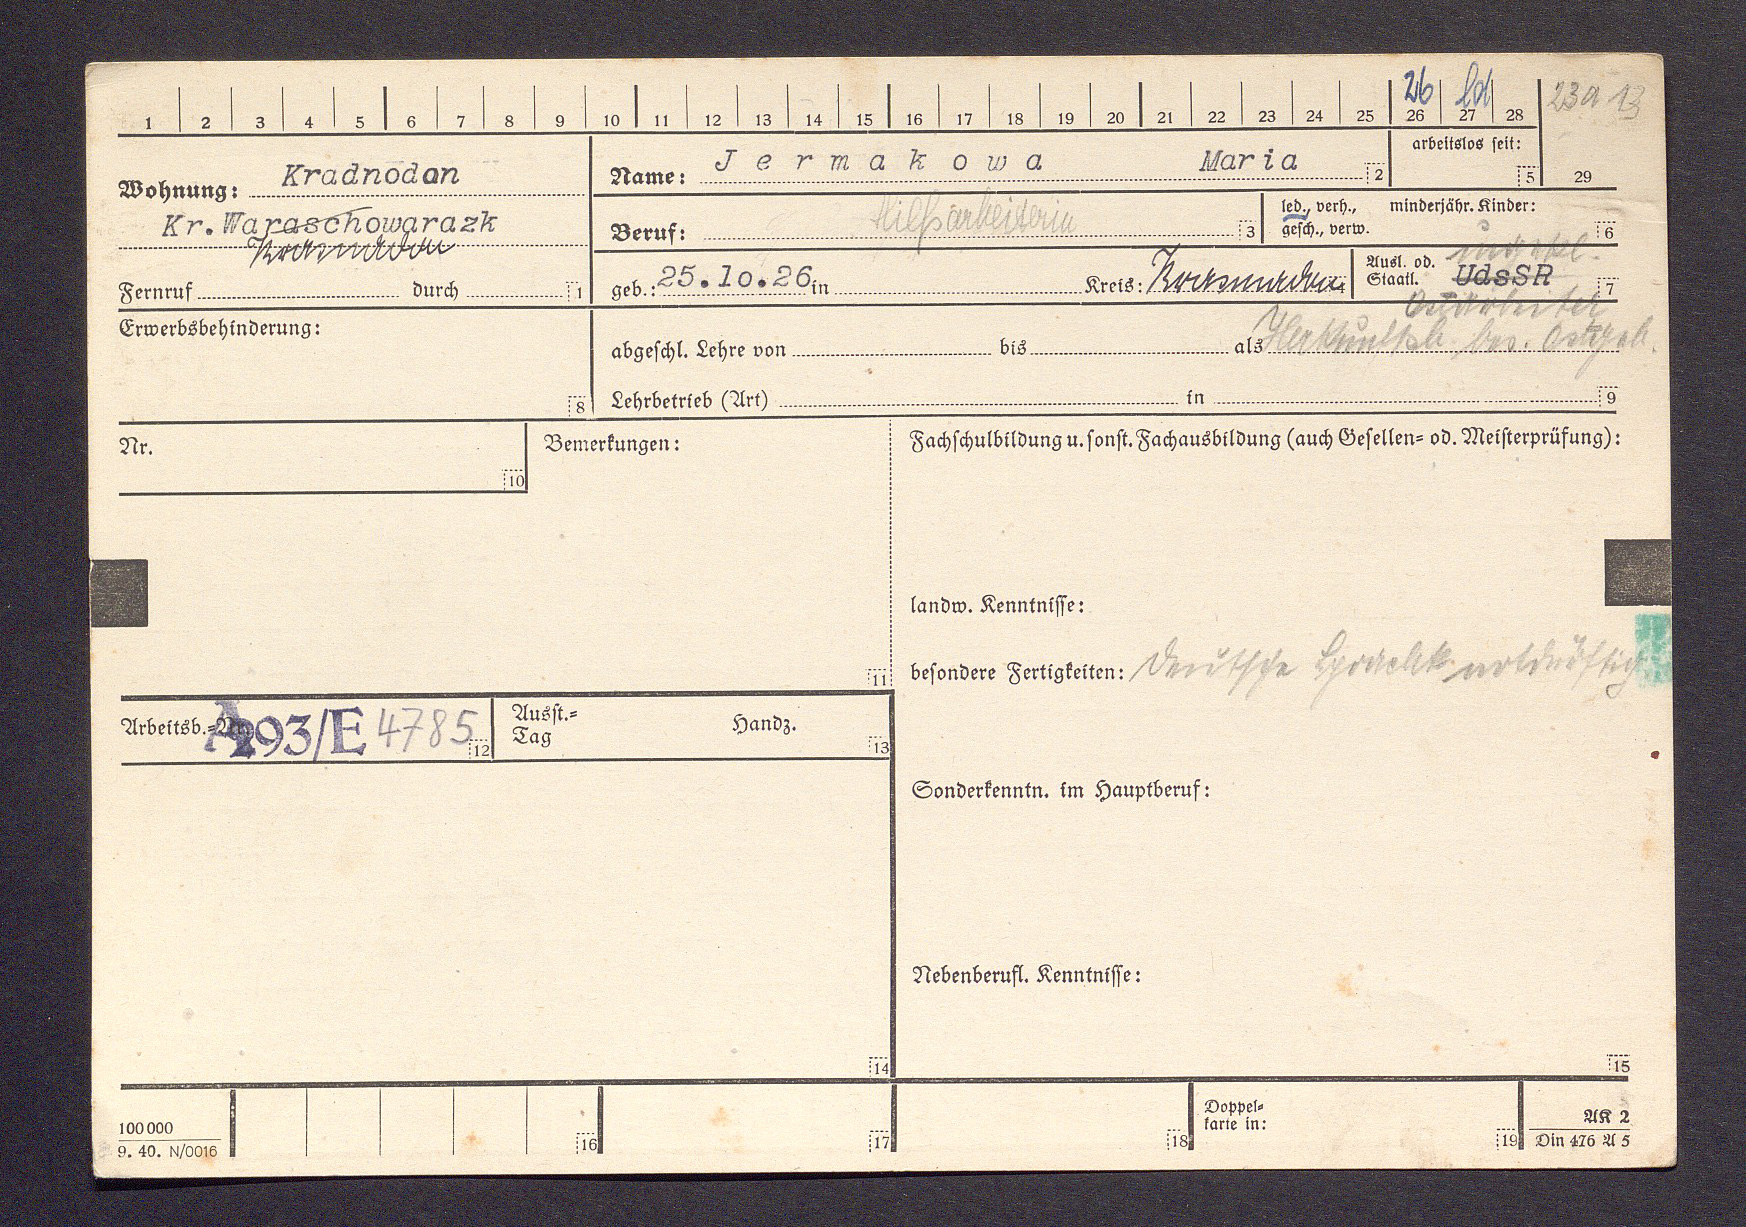 1 2 3 4 5 6 7 8 9 10 11 12 13 14 15 16 17 18 19 20 21 22 23 24 25 26 27 28
26 ld
23a 13
29
Wohnung: Kradnodon
Kr. Waraschowarazk
Krasnodon
Fernruf durch 1
Name: Jermakowa Maria 2
arbeitslos seit: 5
Beruf: Hilfsarbeiterin 3
led., verh., minderjähr. Kinder:
gesch., verw. 6
geb.: 25.10.26 in Kreis: Krasnodon 4
Ausl. od. Staatl. UdSSR 7
ungekl.
Ostarbeiter
Erwerbsbehinderung: 8
abgeschl. Lehre von bis als
Herkunftsl. bes. Ostgeb.
Lehrbetrieb (Art) in 9
Nr. 10
Bemerkungen: 11
Fachschulbildung u. sonst. Fachausbildung (auch Gesellen= od. Meisterprüfung):
landw. Kenntnisse:
besondere Fertigkeiten: Deutsche Sprachk. notdürftig
Arbeitsb.=Nr. A 293/E 4785 12
Ausst.=
Tag
Handz. 13
Sonderkenntn. im Hauptberuf:
Nebenberufl. Kenntnisse:
14
15
100 000
9. 40. N/0016
16
17
18
Doppel=
karte in: 19
AK 2
Din 476 A 5